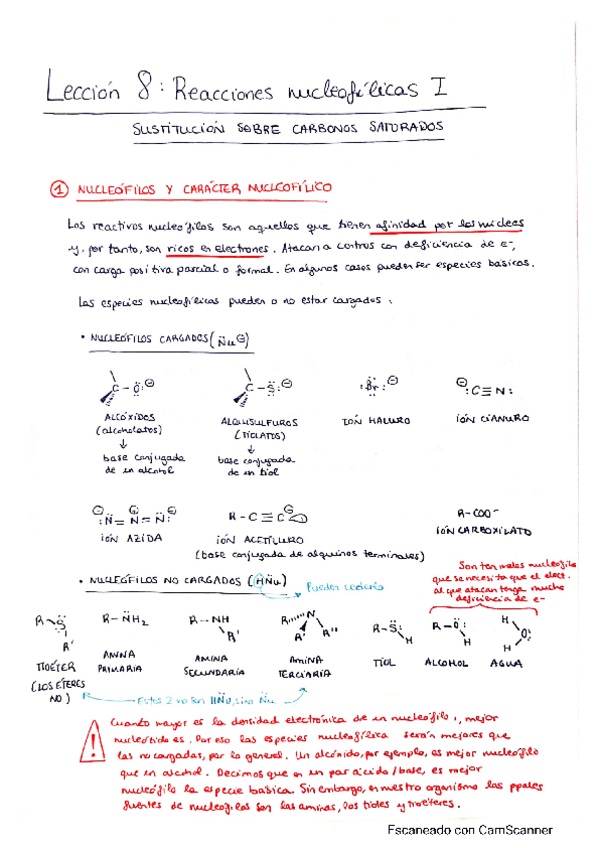 Lección 8: Reacciones nucleofílicas I
SUSTITUCIÓN SOBRE CARBONOS SATURADOS
① NUCLEÓFILOS Y CARÁCTER NUCLEOFÍLICO
Los reactivos nucleófilos son aquellos que tienen afinidad por los núcleos
y, por tanto, son ricos en electrones. Atacan a centros con deficiencia de e-,
con carga positiva parcial o formal. En algunos casos pueden ser especies básicas.
Las especies nucleofílicas pueden o no estar cargados:
• NUCLEÓFILOS CARGADOS (Nu⊖)
C-O:⊖ C-S:⊖ :Br:⊖ ⊖:C≡N:
ALCÓXIDOS ALQUILSULFUROS IÓN HALURO IÓN CIANURO
(alcoholatos) (TIOLATOS)
↓ ↓
base conjugada base conjugada
de un alcohol de un tiol
⊖ ⊕ ⊖
:N=N=N: R-C≡C⊖ R-COO⁻
IÓN AZIDA IÓN ACETILURO IÓN CARBOXILATO
(base conjugada de alquinos terminales)
Son tan malos nucleófilo
que se necesita que el elect.
al que atacan tenga mucha
deficiencia de e-
• NUCLEÓFILOS NO CARGADOS (HNu) Pueden cederlo
R-S: R' R-NH₂ R-NH R' R N R' R'' R-S: H R-O: H H O: H
TIOÉTER AMINA AMINA AMINA TIOL ALCOHOL AGUA
(LOS ÉTERES PRIMARIA SECUNDARIA TERCIARIA
NO) Estos 2 no son HNu, sino Nu
Cuanto mayor es la densidad electrónica de un nucleófilo, mejor
es. Por eso las especies nucleofílica serán mejores que
las no cargadas, por lo general. Un alcóxido, por ejemplo, es mejor nucleófilo
que un alcohol. Decimos que en un par ácido/base, es mejor
nucleófilo la especie básica. Sin embargo, en nuestro organismo las ppales
fuentes de nucleófilos son las aminas, los tioles y tioéteres.
Escaneado con CamScanner